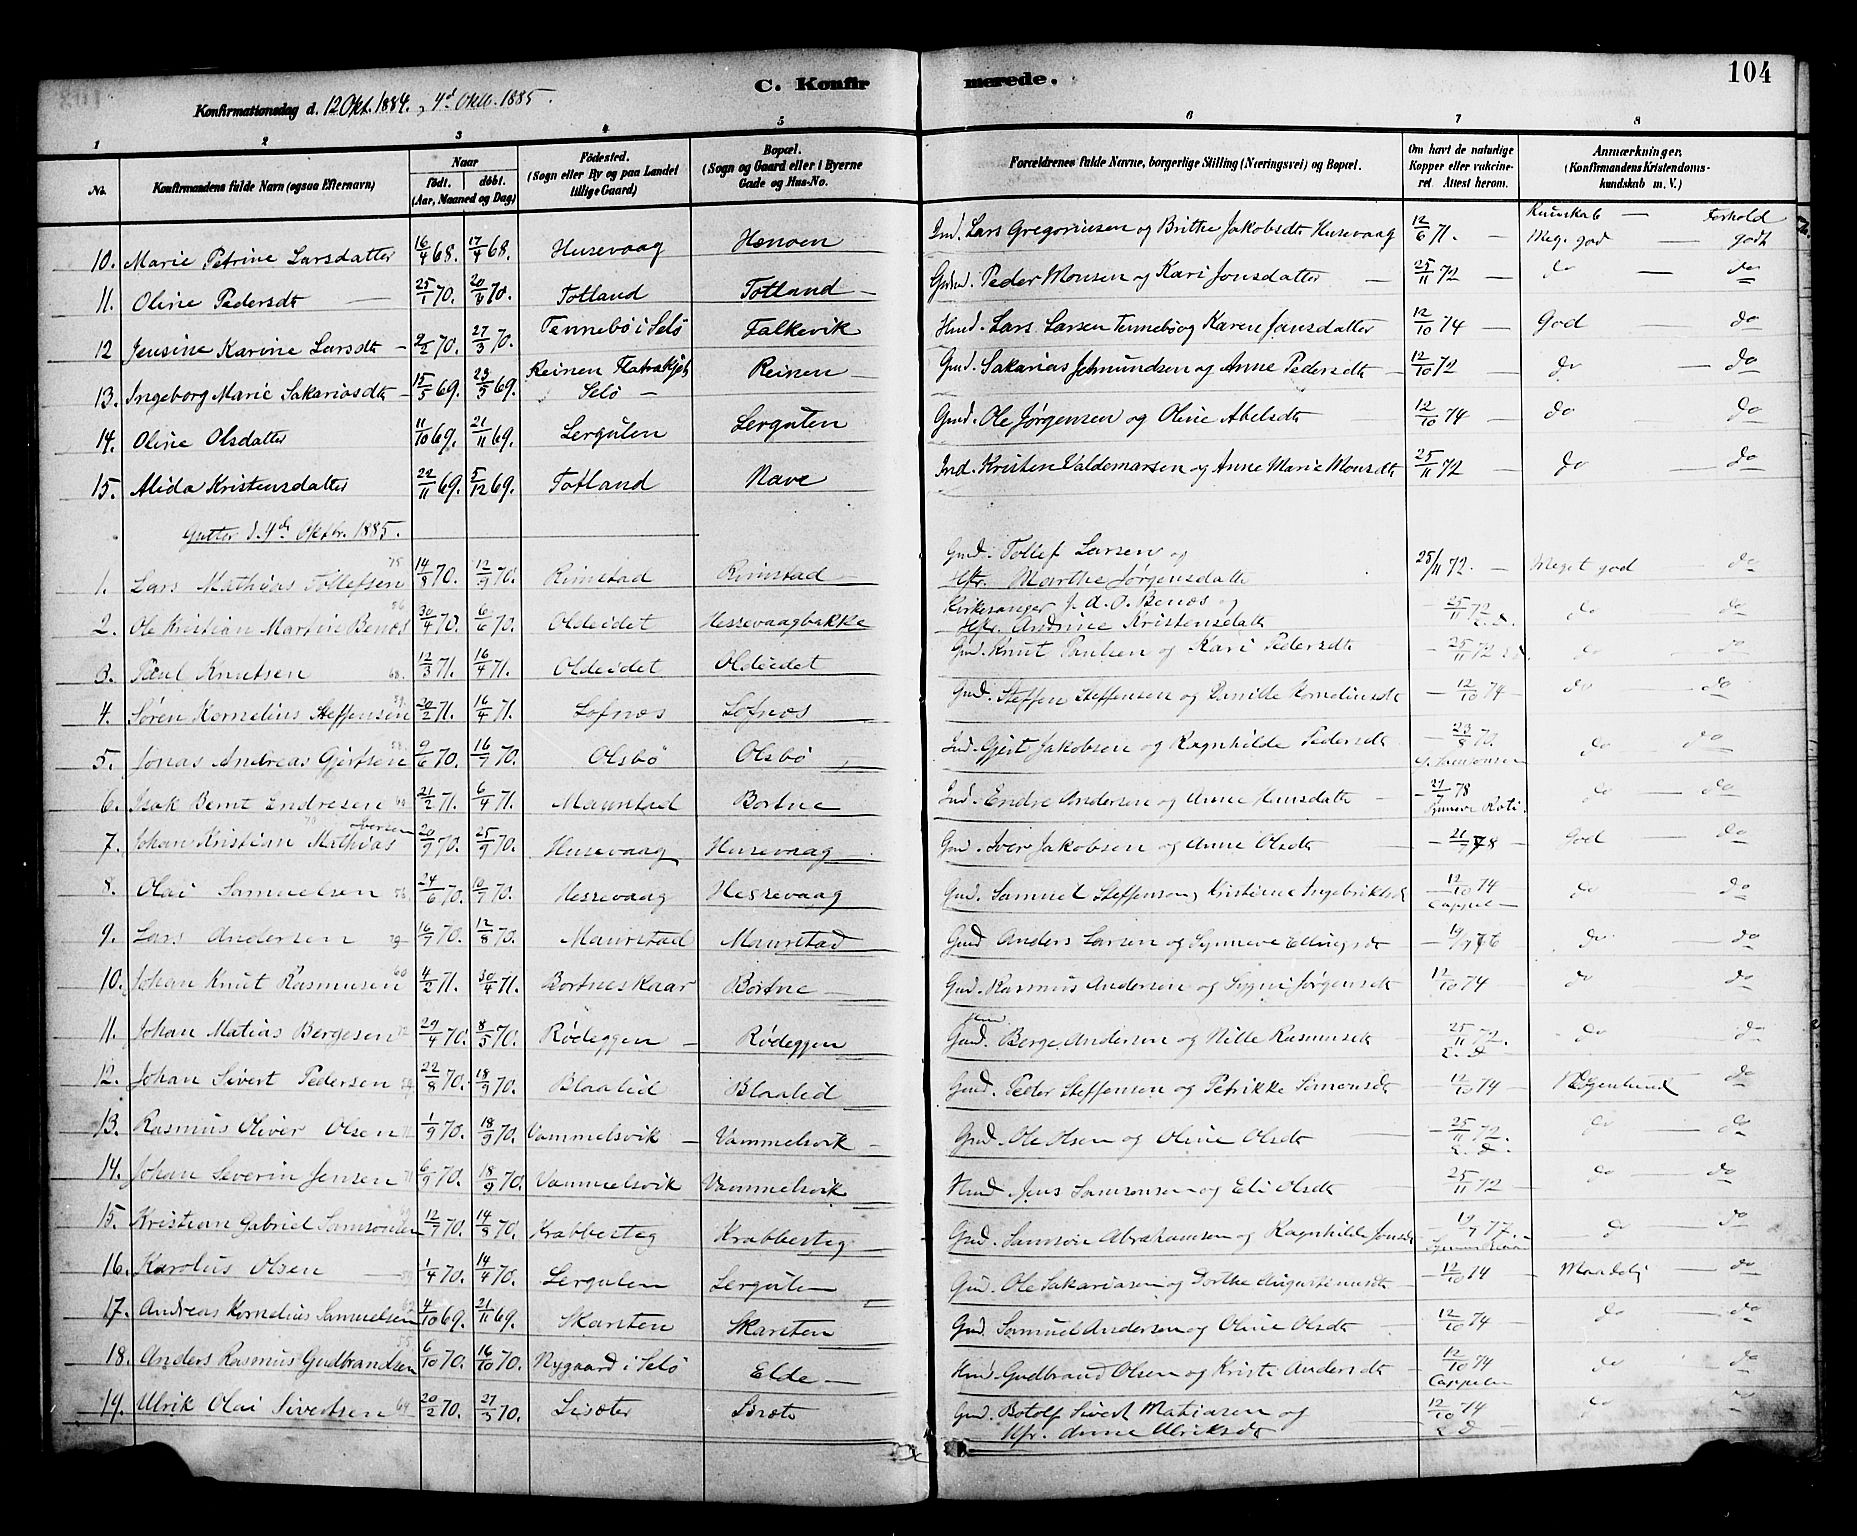 C. Konfirmerede. 104
Konfirmationsdag d. 12 Okt. 1884, 4de Oktb. 1885.
1 2 3 4 5 6 7 8
No. Konfirmandens fulde Navn (ogsaa Efternavn) Naar født. døbt. (Aar, Maaned og Dag) Födested. (Sogn eller By og paa Landet tillige Gaard) Bopæl. (Sogn og Gaard eller i Byerne Gade og Hus-No. Forældrenes fulde Navne, borgerlige Stilling (Næringsvei) og Bopæl. Om havt de naturlige Kopper eller vakcineret Attest herom. Anmærkninger, (Konfirmandens Kristendomskundskab m. V.)
Kundskab — Forhold
10. Marie Petrine Larsdatter 16/4 68. 17/4 68. Husevaag Hennøen Ind. Lars Gregoriusen og Brithe Jakobsdt Husevaag 12/6 71. — Meg. god — godt
11. Oline Pedersdt — 25/1 70. 70. Totland Totland — Peder Monsen og Kari Jonsdatter — 25/11 72 — do — do
12 Jensine Karine Larsdt — 2/2 70. 27/3 70. Tennebø i Selø Falkevik Hmd. Lars Larsen Tennebø og Karen Jonsdatter 12/10 74 — God — do
13. Ingeborg Marie Sakariasdt — 15/5 69. 23/5 69. Reinen Selø — Reinen — Gmd. Sakarias og Anne Pedersdt — 12/10 72 — do — do
14. Oline Olsdatter 11/10 69. 21/11 69. Lergulen Lergulen Gmd. Ole Jørgensen og Oline Abelsdt 12/10 74 — do do
15. Alida Kristensdatter 22/11 69. 5/12 69. Totland Nave Ind. Kristen Valdemarsen og Anne Marie Monsdt 25/11 72 — do — do
Gutter d. 4de Oktbr. 1885.
1. Lars Mathias Tollefsen 14/8 70. 12/9 70. Rimstad Rimstad Gmd. Tollef Larsen og Marthe Jørgensdatt 25/11 72. — Meget god — do
2. Ole Kristian Martin Benæs 30/4 70. 6/6 70. Oldeidet Hessevaagbakke Kirkesanger J. d. O. Benæs og Hstr. Andrine Kristensdatt — 25/11 72 do do
3. Paul Knutsen 12/3 71. 16/4 71. Oldeidet Oldeidet Gmd. Knut Paulsen og Kari Pedersdt — 25/11 72 do do
4. Søren Kornelius Steffensen 20/2 71. 16/4 71. Lofnæs Lofnæs Gmd. Steffen Steffensen og Pernille Korneliusdt — 12/10 74 — do — do
5. Jonas Andreas Gjertsen 9/6 70. 16/7 70. Olsbø Olsbø Ind. Gjert Jakobsen og Ragnhilde Pedersdt — 23/8 70. do do
6. Isak Bernt Endresen 21/2 71. 6/4 71. Maurstad Bortne Ind. Endre Andersen og Anne Hansdatt — 27/7 78 do — do
7. Johan Kristian Mathias Iversen 20/9 70. 25/9 70. Husevaag Husevaag Gmd. Iver Jakobsen og Anne Olsdt — 78 — God — do
8. Olai Samuelsen 24/6 70. 10/7 70. Hessevaag Hessevaag Gmd. Samuel Steffensen, Kristine Ingebrikts — 12/10 74 Cappelen do do
9. Lars Andersen 16/7 70. 12/8 70. Maurstad Maurstad Gmd Anders Larsen og Synneve Ellingsdt — 76 — do — do
10. Johan Knut Rasmusen 60 4/2 71. 30/4 71. Bortneskaar Bortne — Gmd. Rasmus Andersen og Signe Jørgensdt 12/10 74 do — do
11. Johan Matias Bergesen 29/4 70. 8/5 70. Rødeggen — Rødeggen Gmd. Berge Andersen og Nille Rasmusdt 25/11 72. do do
12. Johan Sivert Pedersen 22/8 70. 18/9 70. Blaalid Blaalid Gmd. Peder Steffensen og Petrikke Simonsdt — 12/10 74 — Nogenlund — do
13. Rasmus Oliver Olsen 1/9 70. 18/9 70. Vammelsvik — Vammelsvik — Gmd. Ole Olsen og Oline Olsdt — 25/11 72. do do
14. Johan Severin Jensen 6/9 70. 18/9 70. Vammelsvik Vammelsvik Hmd Jens Samsonsen og Eli Olsdt 25/11 72 do — do
15. Kristian Gabriel Samsonsen 12/7 70. 14/8 70. Krabbesteg Krabbesteg Gmd. Samson Abrahamsen og Ragnhilde Jonsdt — 77. — do — do
16. Karolus Olsen — 1/4 70. 14/4 70. Lergulen Lergulen Gmd. Ole Sakariasen og Dorthe Augustinusdt — 12/10 74 — Maadelig — do
17. Andreas Kornelius Samuelsen 4/10 69. 21/11 69. Skarsten Skarsten Gmd. Samuel Andersen og Oline Olsdt 12/10 74 do do
18. Anders Rasmus Gudbrandsen 6/10 70. 16/10 70. Nygaard i Selø Elde — Hmd. Gudbrand Olsen og Kristi Andersdt — 12/10 74 Cappelen do — do
19. Ulrik Olai Sivertsen 64 20/2 70. 27/3 70. Lisæter Gmd. Botolf Sivert Matiasen og Hfr. Anne Ulriksdt 12/10 74 do